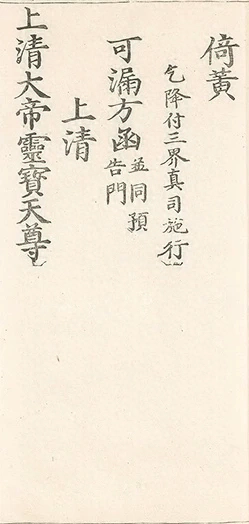 倚黃
乞降付三界真司施行
可漏方函並同預告門
上清
上清大帝靈寶天尊